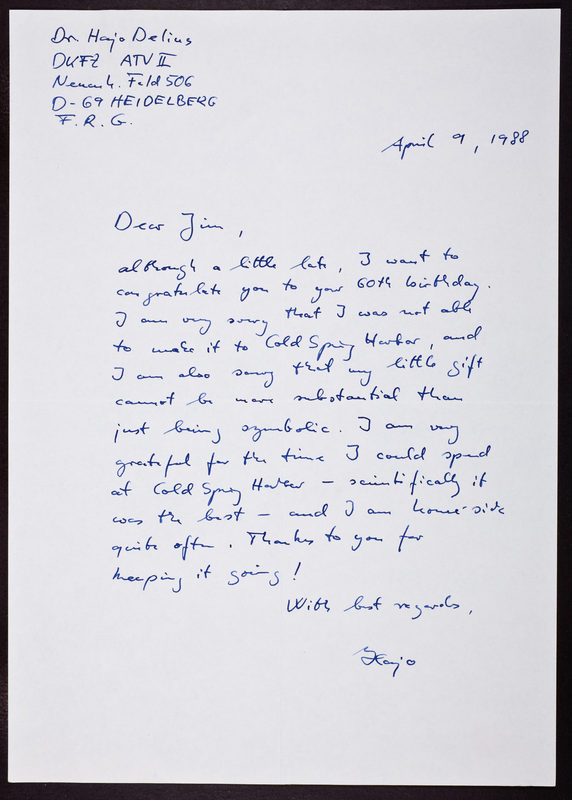 Dr. Hajo Delius
DKFZ ATV II
Neuenh. Feld 506
D-69 HEIDELBERG
F. R. G.
April 9, 1988
Dear Jim,
although a little late, I want to
congratulate you to your 60th birthday.
I am very sorry that I was not able
to make it to Cold Spring Harbor, and
I am also sorry that my little gift
cannot be more substantial than
just being symbolic. I am very
grateful for the time I could spend
at Cold Spring Harbor - scientifically it
was the best - and I am home-sick
quite often. Thanks to you for
keeping it going!
With best regards,
Hajo